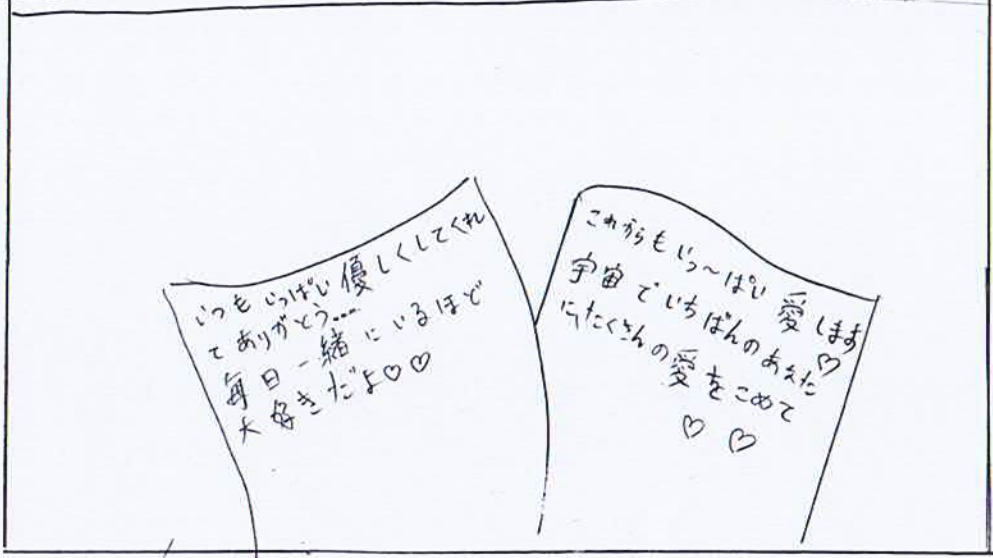 いつもいっぱい優しくしてくれ
てありがとう....
毎日一緒にいるほど
大好きだよ♡♡
これからもいっ〜ぱい愛します♡
宇宙でいちばんのあなた
にたくさんの愛をこめて
♡ ♡